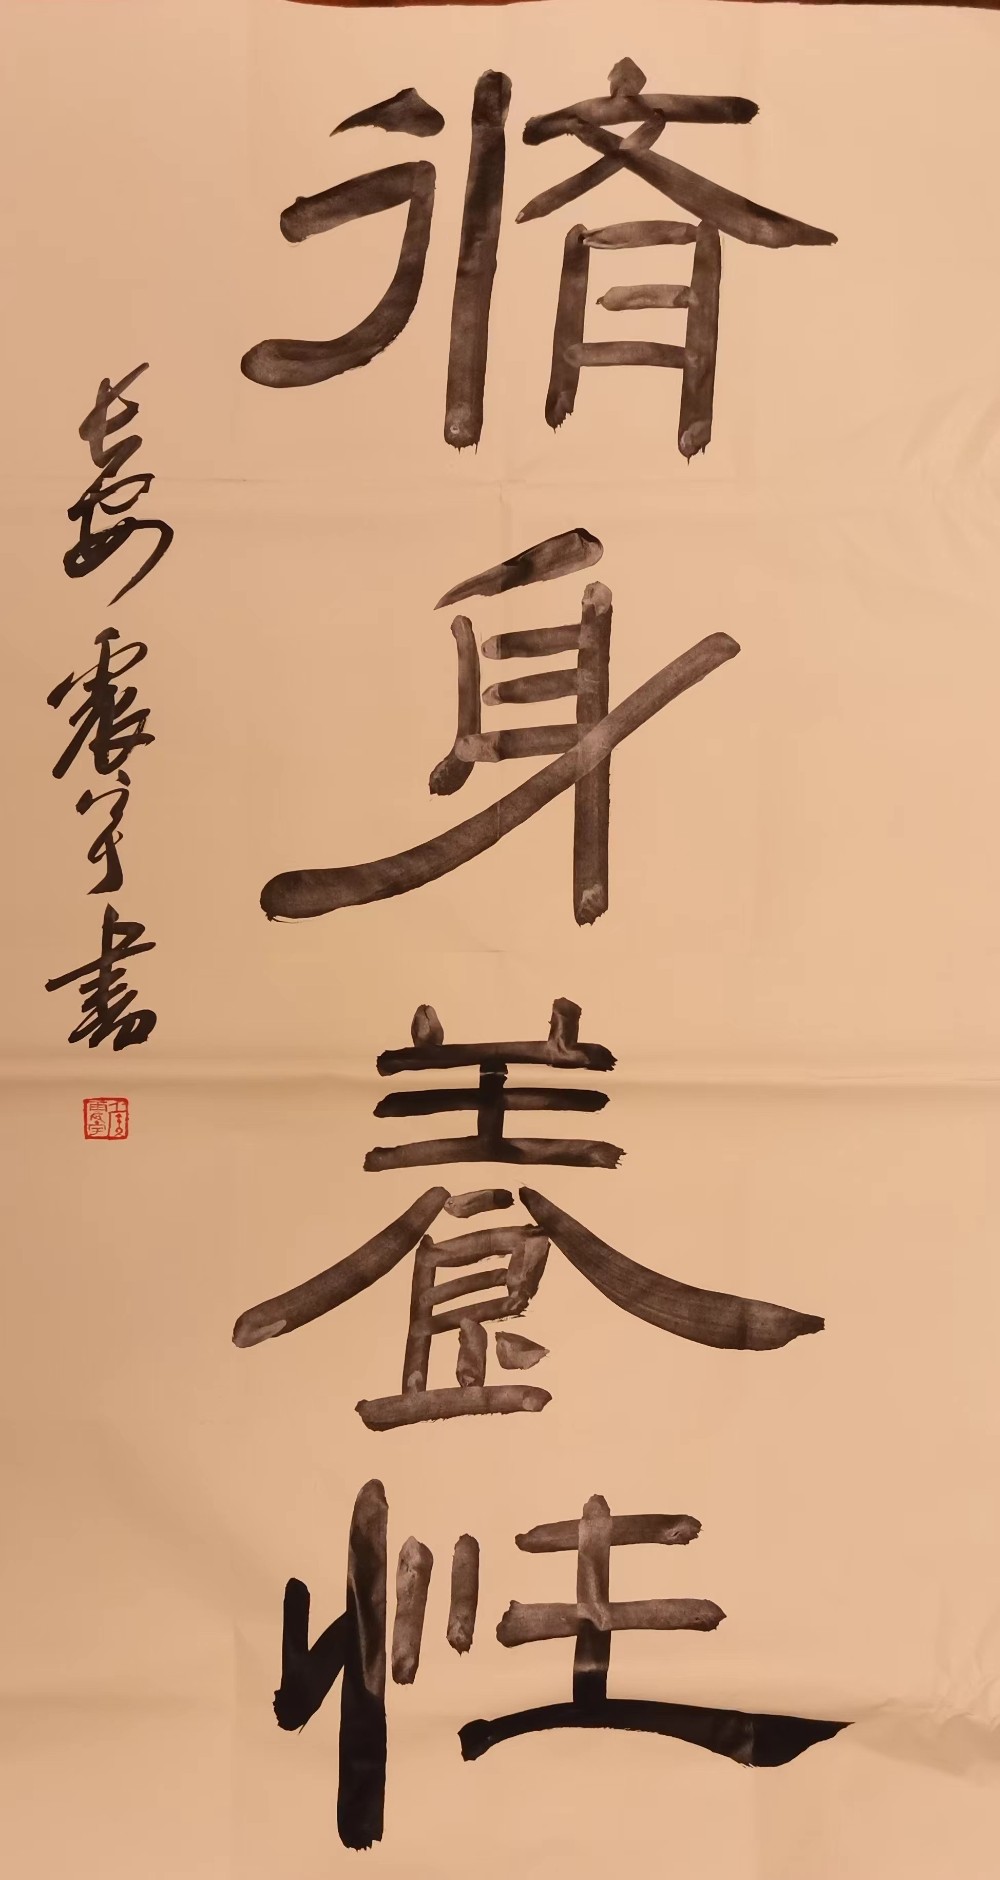 脩身養性
長安震宇書